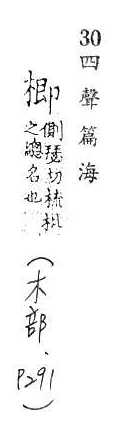 30四聲篇海
楖側瑟切梳枇
之總名也
(木部.
P291)